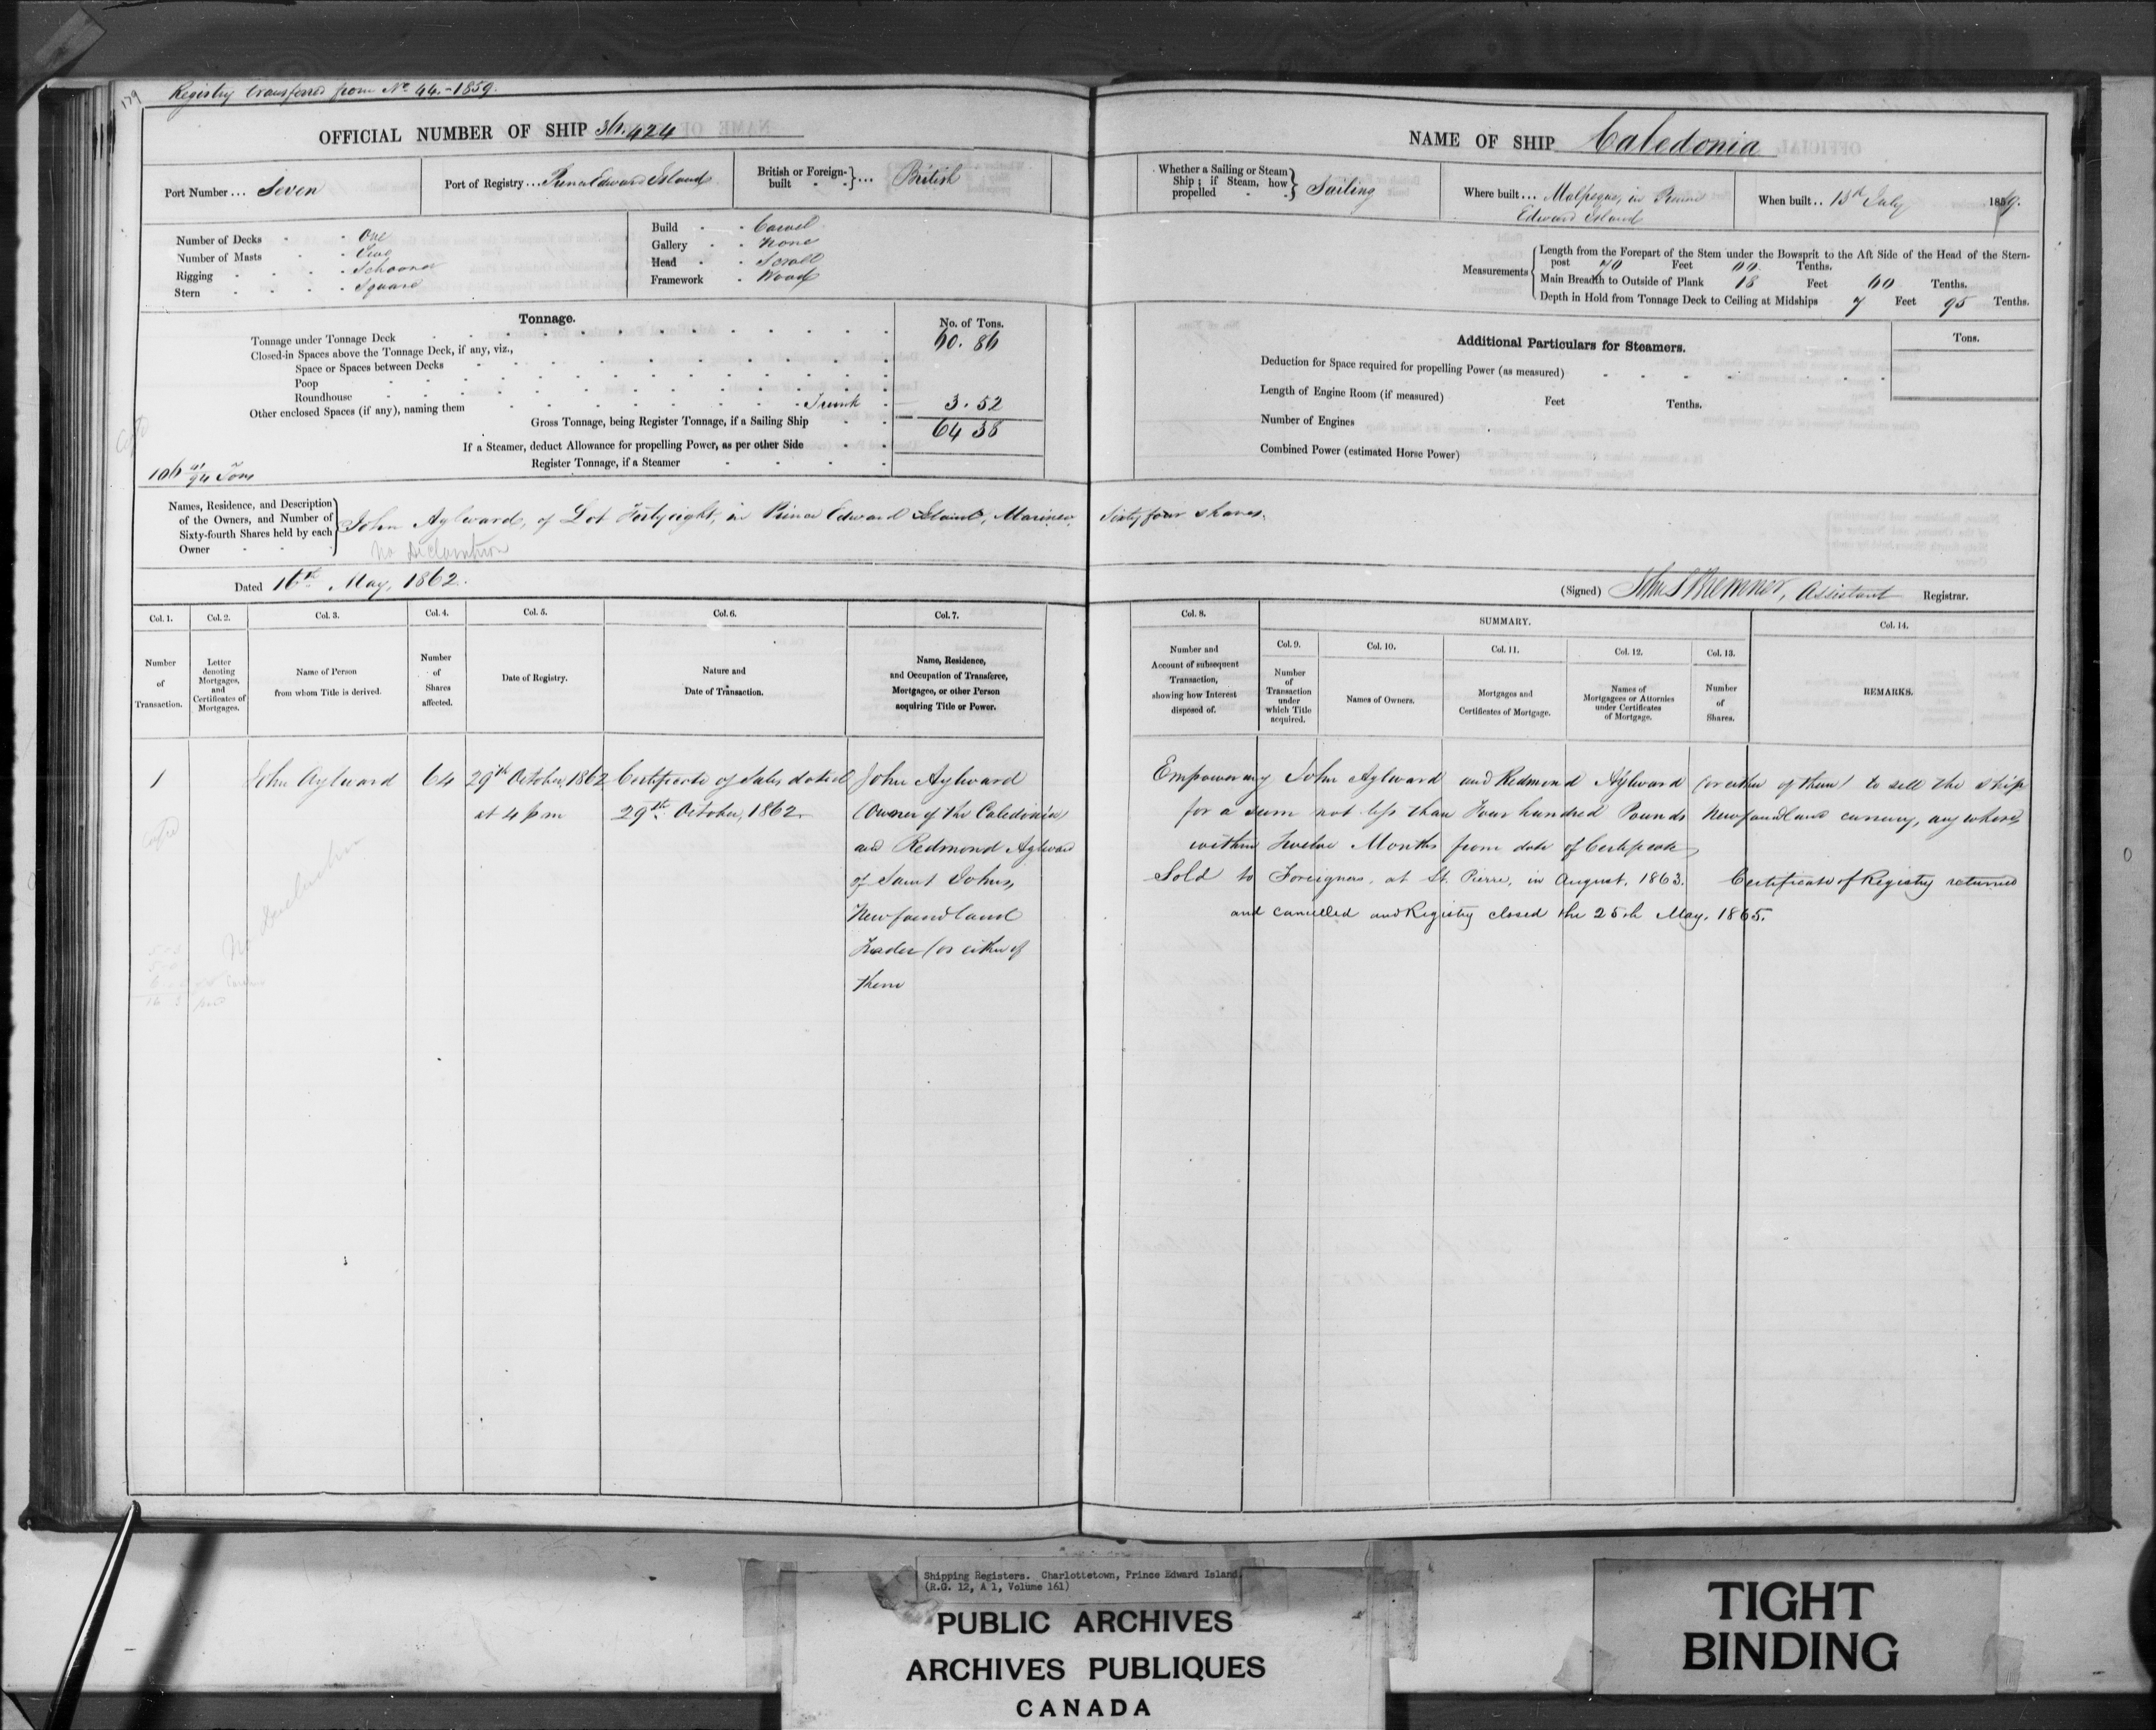 179
Registry transferred from No 44.-1859.
OFFICIAL NUMBER OF SHIP 36.424
Port Number ... Seven
Port of Registry ... Prince Edward Island
British or Foreign-built ... British
Number of Decks One
Number of Masts Two
Rigging Schooner
Stern Square
Build Carvel
Gallery None
Head Scroll
Framework Wood
Tonnage.
No. of Tons.
Tonnage under Tonnage Deck 60.86
Closed-in Spaces above the Tonnage Deck, if any, viz.,
Space or Spaces between Decks
Poop
Roundhouse
Other enclosed Spaces (if any), naming them Trunk 3.52
Gross Tonnage, being Register Tonnage, if a Sailing Ship 64 38
If a Steamer, deduct Allowance for propelling Power, as per other Side
Register Tonnage, if a Steamer
106 91/94 Tons
Names, Residence, and Description of the Owners, and Number of Sixty-fourth Shares held by each Owner
John Aylward, of Lot Forty eight, in Prince Edward Island, Mariner, Sixty four shares.
No Declaration
Dated 16th May, 1862.
NAME OF SHIP Caledonia
Whether a Sailing or Steam Ship; if Steam, how propelled Sailing
Where built ... Malpeque, in Prince
Edward Island
When built .. 15th July 1859.
Measurements
Length from the Forepart of the Stem under the Bowsprit to the Aft Side of the Head of the Stern-
post 70 Feet 00 Tenths.
Main Breadth to Outside of Plank 18 Feet 60 Tenths.
Depth in Hold from Tonnage Deck to Ceiling at Midships 7 Feet 95 Tenths.
Additional Particulars for Steamers.
Tons.
Deduction for Space required for propelling Power (as measured)
Length of Engine Room (if measured) Feet Tenths.
Number of Engines
Combined Power (estimated Horse Power)
(Signed) Assistant Registrar.
Col. 1.
Number of Transaction.
Col. 2.
Letter denoting Mortgages, and Certificates of Mortgages.
Col. 3.
Name of Person from whom Title is derived.
Col. 4.
Number of Shares affected.
Col. 5.
Date of Registry.
Col. 6.
Nature and Date of Transaction.
Col. 7.
Name, Residence, and Occupation of Transferee, Mortgagee, or other Person acquiring Title or Power.
Col. 8.
Number and Account of subsequent Transaction, showing how Interest disposed of.
SUMMARY.
Col. 9.
Number of Transaction under which Title acquired.
Col. 10.
Names of Owners.
Col. 11.
Mortgages and Certificates of Mortgage.
Col. 12.
Names of Mortgagees or Attornies under Certificates of Mortgage.
Col. 13.
Number of Shares.
Col. 14.
REMARKS.
1
John Aylward
64
29th October, 1862
at 4 p m
Certificate of Sale, dated
29th October, 1862.
John Aylward
(Owner of the Caledonia)
and Redmond Aylward
of Saint Johns,
Newfoundland
Trader (or either of
them
Empowering John Aylward and Redmond Aylward (or either of them) to sell the ship
for a sum not less than Four hundred Pounds Newfoundland currency, any where,
within Twelve Months from date of Certificate
Sold to Foreigners, at St. Pierre, in August, 1863. Certificate of Registry returned
and cancelled and Registry closed the 25th May, 1865.
No Declaration
Shipping Registers. Charlottetown, Prince Edward Island.
(R.G. 12, A 1, Volume 161)
PUBLIC ARCHIVES
ARCHIVES PUBLIQUES
CANADA
TIGHT
BINDING